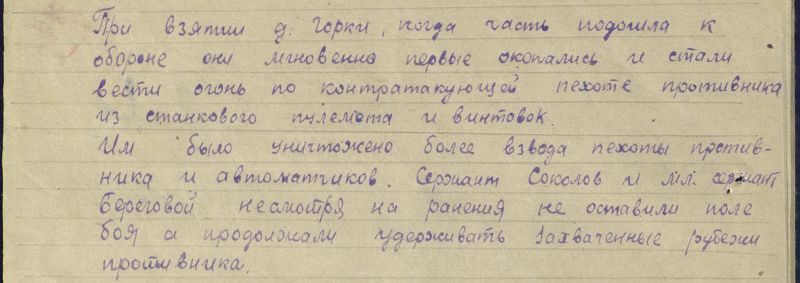 При взятии д. Горки, когда часть подошла к
обороне они мгновенно первые окопались и стали
вести огонь по контратакующей пехоте противника
из станкового пулемета и винтовок.
Им было уничтожено более взвода пехоты против-
ника и автоматчиков. Сержант Соколов и мл. сержант
Береговой несмотря на ранения не оставили поле
боя а продолжали удерживать захваченные рубежи
противника.